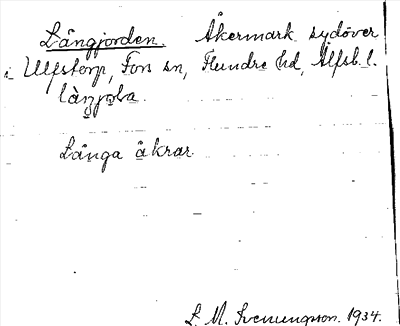 Långjorden. Åkermark sydöver
i Ulfstorp, Fors sn, Flundre hd, Älfsb. l.
Långa åkrar.
L. M. Svenungsson. 1934.